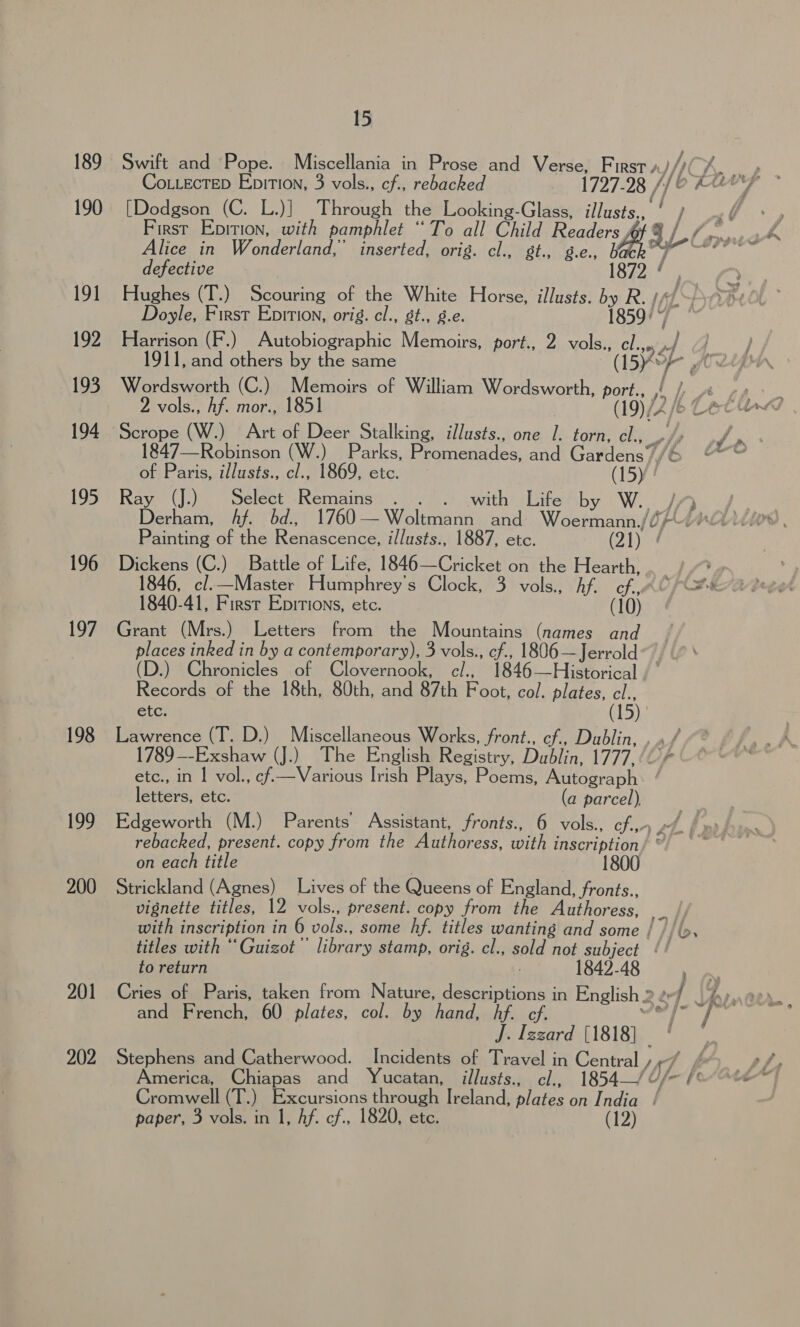 15
189 Swift and Pope. Miscellania in Prose and Verse, First
Collected Edition, 3 vols., cf., rebacked 1727-28
190 [Dodgson (C. L.)] Through the Looking-Glass, illusts.,
First Edition, with pamphlet “To all Child Readers of
Alice in Wonderland,” inserted, orig. cl., gt., g.e., back
defective 1872
191 Hughes (T.) Scouring of the White Horse, illusts. by R.
Doyle, First Edition, orig. cl., gt., g.e. 1859
192 Harrison (F.) Autobiographic Memoirs, port., 2 vols., cl.,
1911, and others by the same (15)
193 Wordsworth (C.) Memoirs of William Wordsworth, port.,
2 vols., hf. mor., 1851 (19)
194 Scrope (W.) Art of Deer Stalking, illusts., one l. torn, cl.,
1847—Robinson (W.) Parks, Promenades, and Gardens
of Paris, illusts., cl., 1869, etc. (15)
195 Ray (J.) Select Remains . . . with Life by W.
Derham, hf. bd., 1760—Woltmann and Woermann,
Painting of the Renascence, illusts., 1887, etc. (21)
196 Dickens (C.) Battle of Life, 1846—Cricket on the Hearth,
1846, cl.—Master Humphrey's Clock, 3 vols., hf. cf.,
1840-41, First Editions, etc. (10)
197 Grant (Mrs.) Letters from the Mountains (names and
places inked in by a contemporary), 3 vols., cf., 1806—Jerrold
(D.) Chronicles of Clovernook, cl., 1846—Historical
Records of the 18th, 80th, and 87th Foot, col. plates, cl.,
etc. (15)
198 Lawrence (T. D.) Miscellaneous Works, front., cf., Dublin,
1789—Exshaw (J.) The English Registry, Dublin, 1777,
etc., in 1 vol., cf.—Various Irish Plays, Poems, Autograph
letters, etc. (a parcel)
199 Edgeworth (M.) Parents' Assistant, fronts., 6 vols., cf.,
rebacked, present. copy from the Authoress, with inscription
on each title 1800
200 Strickland (Agnes) Lives of the Queens of England, fronts.,
vignette titles, 12 vols., present. copy from the Authoress,
with inscription in 6 vols., some hf. titles wanting and some
titles with “Guizot” library stamp, orig. cl., sold not subject
to return 1842-48
201 Cries of Paris, taken from Nature, descriptions in English
and French, 60 plates, col. by hand, hf. cf.
J. Izzard [1818]
202 Stephens and Catherwood. Incidents of Travel in Central
America, Chiapas and Yucatan, illusts., cl., 1854—
Cromwell (T.) Excursions through Ireland, plates on India
paper, 3 vols. in 1, hf. cf., 1820, etc. (12)